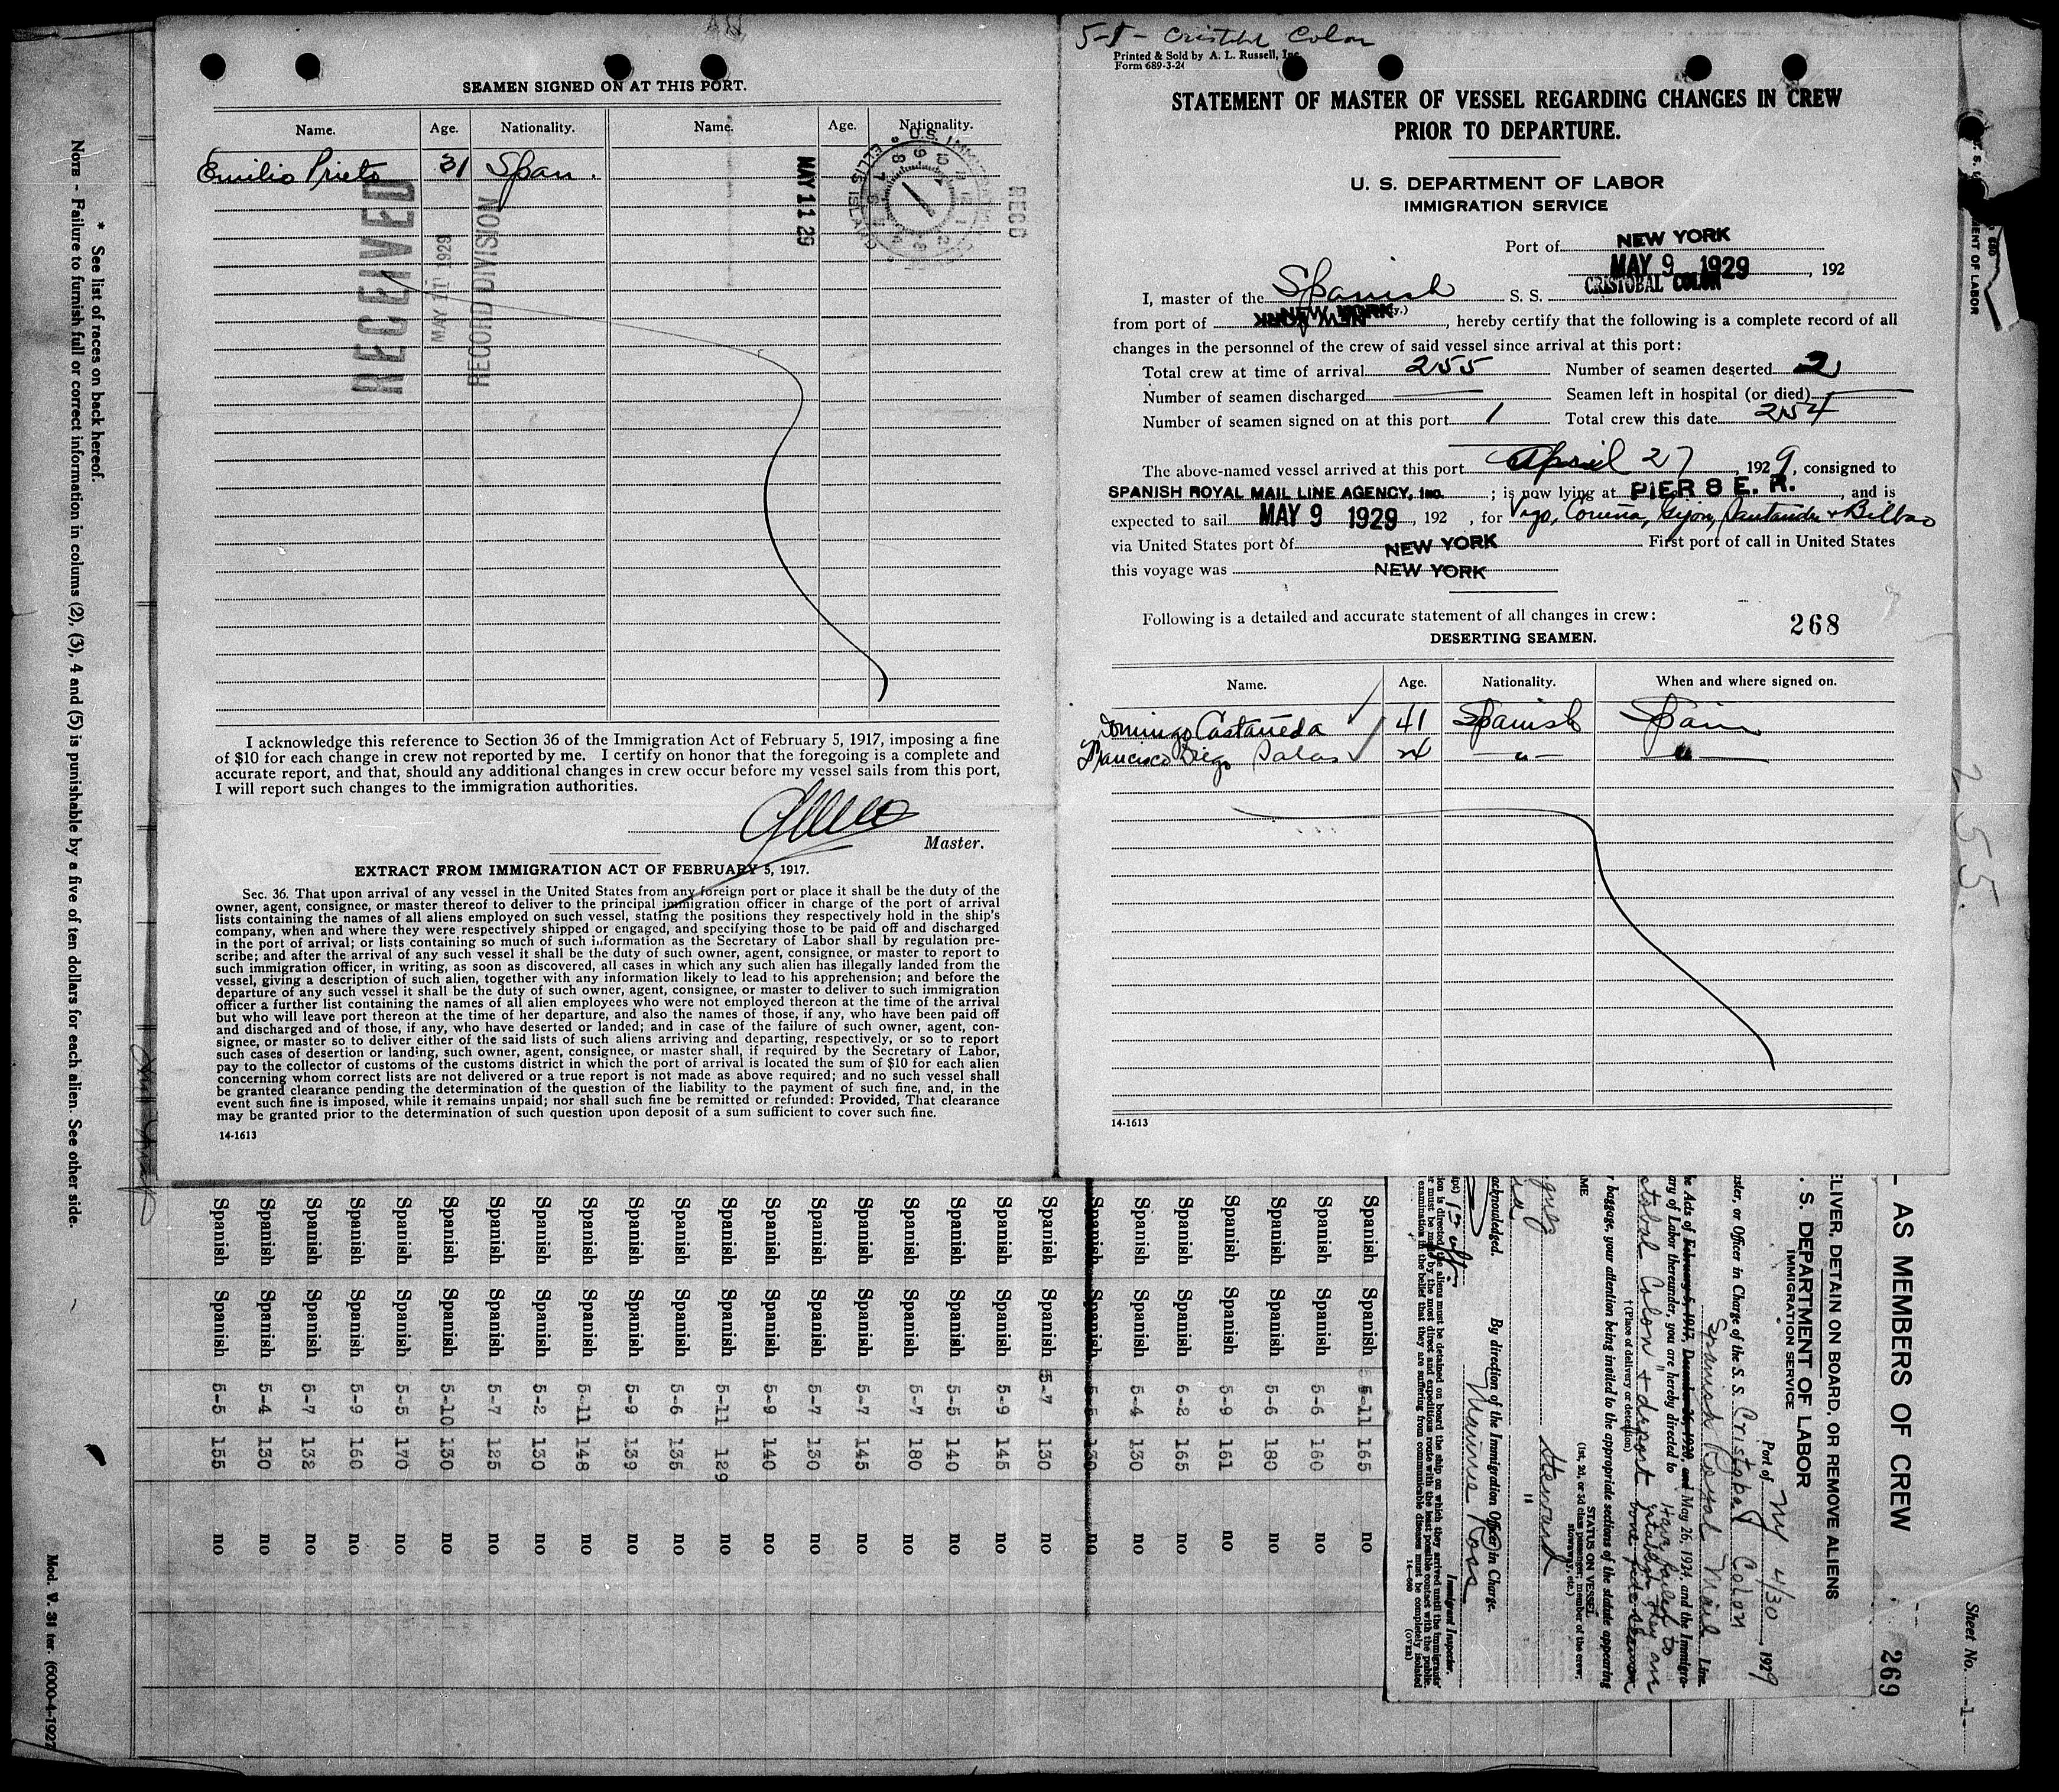 SEAMEN SIGNED ON AT THIS PORT.
Name. Age. Nationality. Name. Age. Nationality.
Emilio Prieto 31 Span.
RECEIVED
MAY 11 1929
RECORD DIVISION
MAY 11 29
U.S. IMMIGRATION
ELLIS ISLAND
RECD
I acknowledge this reference to Section 36 of the Immigration Act of February 5, 1917, imposing a fine
of $10 for each change in crew not reported by me. I certify on honor that the foregoing is a complete and
accurate report, and that, should any additional changes in crew occur before my vessel sails from this port,
I will report such changes to the immigration authorities.
Master.
EXTRACT FROM IMMIGRATION ACT OF FEBRUARY 5, 1917.
Sec. 36. That upon arrival of any vessel in the United States from any foreign port or place it shall be the duty of the
owner, agent, consignee, or master thereof to deliver to the principal immigration officer in charge of the port of arrival
lists containing the names of all aliens employed on such vessel, stating the positions they respectively hold in the ship's
company, when and where they were respectively shipped or engaged, and specifying those to be paid off and discharged
in the port of arrival; or lists containing so much of such information as the Secretary of Labor shall by regulation pre-
scribe; and after the arrival of any such vessel it shall be the duty of such owner, agent, consignee, or master to report to
such immigration officer, in writing, as soon as discovered, all cases in which any such alien has illegally landed from the
vessel, giving a description of such alien, together with any information likely to lead to his apprehension; and before the
departure of any such vessel it shall be the duty of such owner, agent, consignee, or master to deliver to such immigration
officer a further list containing the names of all alien employees who were not employed thereon at the time of the arrival
but who will leave port thereon at the time of her departure, and also the names of those, if any, who have been paid off
and discharged and of those, if any, who have deserted or landed; and in case of the failure of such owner, agent, con-
signee, or master so to deliver either of the said lists of such aliens arriving and departing, respectively, or so to report
such cases of desertion or landing, such owner, agent, consignee, or master shall, if required by the Secretary of Labor,
pay to the collector of customs of the customs district in which the port of arrival is located the sum of $10 for each alien
concerning whom correct lists are not delivered or a true report is not made as above required; and no such vessel shall
be granted clearance pending the determination of the question of the liability to the payment of such fine, and, in the
event such fine is imposed, while it remains unpaid; nor shall such fine be remitted or refunded: Provided, That clearance
may be granted prior to the determination of such question upon deposit of a sum sufficient to cover such fine.
14-1613
5-1- Cristobal Colon
Printed & Sold by A. L. Russell, Inc.
Form 689-3-24
STATEMENT OF MASTER OF VESSEL REGARDING CHANGES IN CREW
PRIOR TO DEPARTURE.
U. S. DEPARTMENT OF LABOR
IMMIGRATION SERVICE
Port of NEW YORK
MAY 9 1929, 192
I, master of the Spanish S. S. CRISTOBAL COLON
from port of NEW YORK, hereby certify that the following is a complete record of all
changes in the personnel of the crew of said vessel since arrival at this port:
Total crew at time of arrival 255 Number of seamen deserted 2
Number of seamen discharged — Seamen left in hospital (or died) —
Number of seamen signed on at this port 1 Total crew this date 254
The above-named vessel arrived at this port April 27, 1929, consigned to
SPANISH ROYAL MAIL LINE AGENCY, Inc. ; is now lying at PIER 8 E. R., and is
expected to sail MAY 9 1929, 192 , for Vigo, Coruña, Gijon, Santander + Bilbao
via United States port of NEW YORK First port of call in United States
this voyage was NEW YORK
Following is a detailed and accurate statement of all changes in crew:
268
DESERTING SEAMEN.
Name. Age. Nationality. When and where signed on.
Domingo Castañeda 41 Spanish Spain
Francisco Diego Salas 24 -"- "
14-1613
255.
* See list of races on back hereof.
NOTE - Failure to furnish full or correct information in colums (2), (3), 4 and (5) is punishable by a five of ten dollars for each alien. See other side.
Mod. V. 31 ter. (6000-4-1927
AS MEMBERS OF CREW
269
Sheet No. 1
ELIVER, DETAIN ON BOARD, OR REMOVE ALIENS
. S. DEPARTMENT OF LABOR
IMMIGRATION SERVICE
Port of NY 4/30, 1929
ster, or Officer in Charge of the S. S. Cristobal Colon
Spanish Royal Mail Line.
he Acts of February 5, 1917, December 26, 1920, and May 26, 1924, and the Immigra-
ary of Labor thereunder, you are hereby directed to
have failed to
stobal Colon + deport establish they are
† (Place of delivery or detention) bona fide seamen
r baggage, your attention being invited to the appropriate sections of the statute appearing
AME
STATUS ON VESSEL
(1st, 2d, or 3d class passenger, member of the crew,
stowaway, etc.)
Steward
"
By direction of the Immigration Officer in Charge.
acknowledged.
Immigrant Inspector.
14-600
(OVER)
Spanish Spanish 5-11 165 no
Spanish Spanish 5-6 160 no
Spanish Spanish 5-6 180 no
Spanish Spanish 5-9 161 no
Spanish Spanish 6-2 165 no
Spanish Spanish 5-4 130 no
Spanish Spanish 5-5 130 no
Spanish Spanish 5-7 130 no
Spanish Spanish 5-9 145 no
Spanish Spanish 5-7 140 no
Spanish Spanish 5-7 180 no
Spanish Spanish 5-7 145 no
Spanish Spanish 5-7 130 no
Spanish Spanish 5-9 140 no
Spanish Spanish 5-11 129 no
Spanish Spanish 5-6 135 no
Spanish Spanish 5-9 139 no
Spanish Spanish 5-11 148 no
Spanish Spanish 5-2 130 no
Spanish Spanish 5-7 125 no
Spanish Spanish 5-10 130 no
Spanish Spanish 5-5 170 no
Spanish Spanish 5-9 160 no
Spanish Spanish 5-7 132 no
Spanish Spanish 5-4 130 no
Spanish Spanish 5-5 155 no